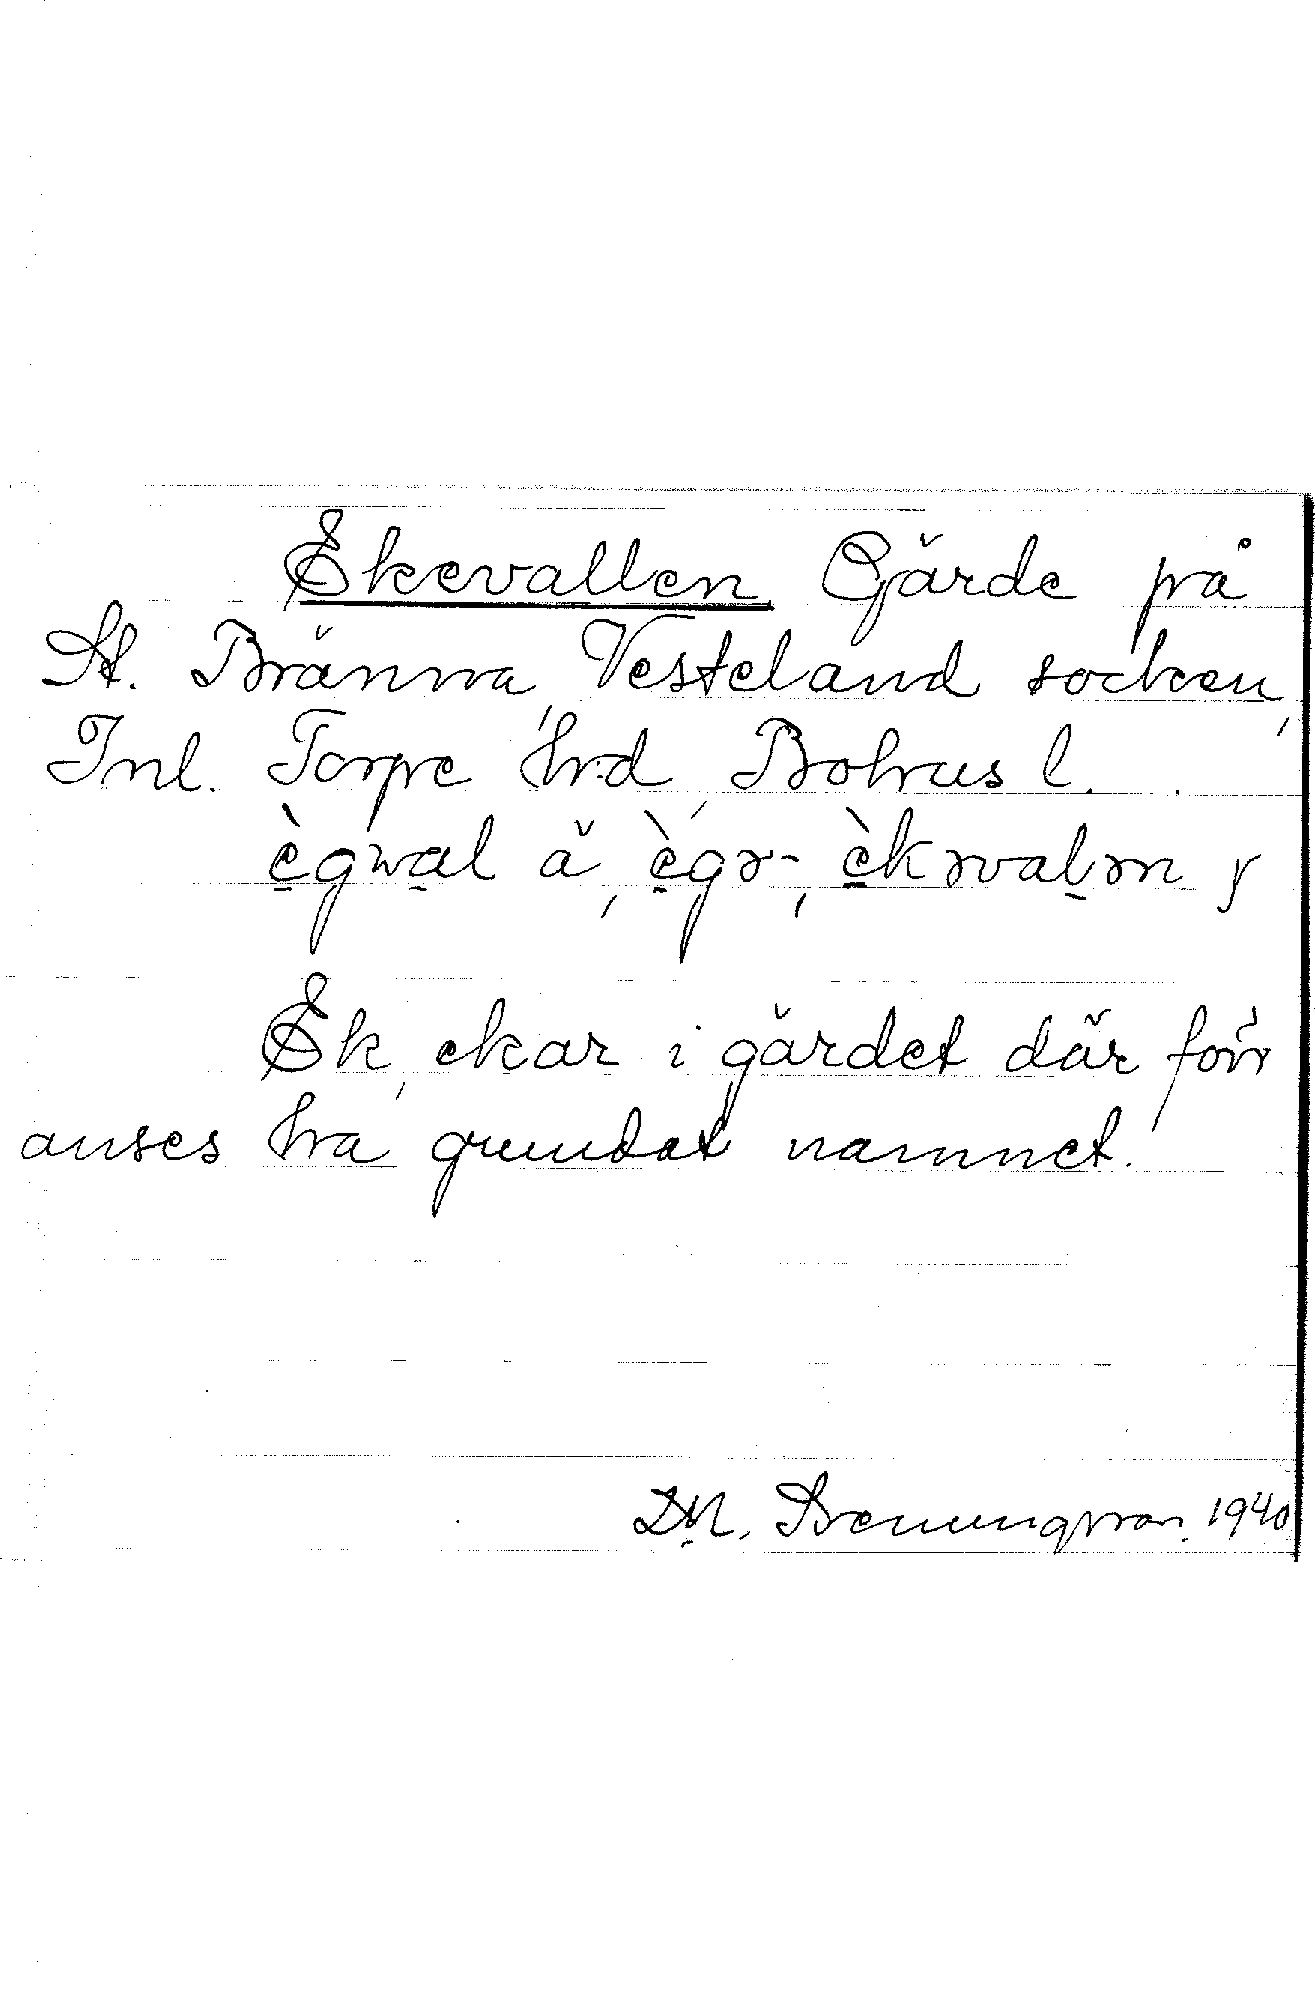 Ekevallen Gärde på
St. Bränna, Vesteland socken,
Inl. Torpe hrd, Bohus l.
ègwal ä, ègə-, èkəvalən y
Ek, ekar i gärdet där förr
anses ha grundat namnet.
1940